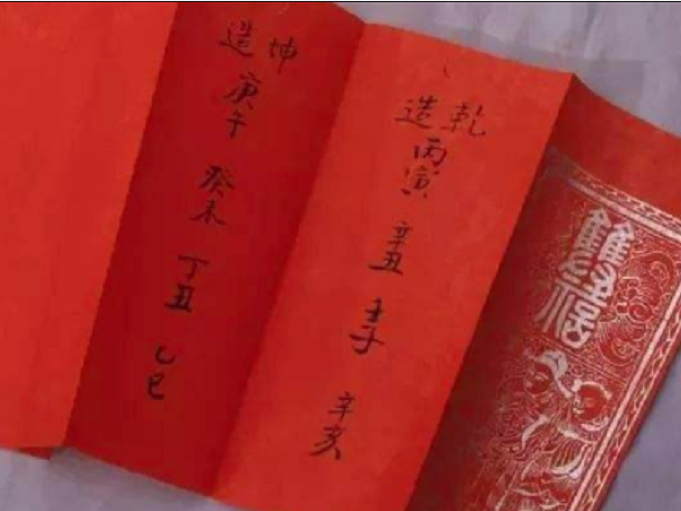 乾造
丙寅
辛丑
壬子
辛亥
坤造
庚午
癸未
丁丑
乙巳